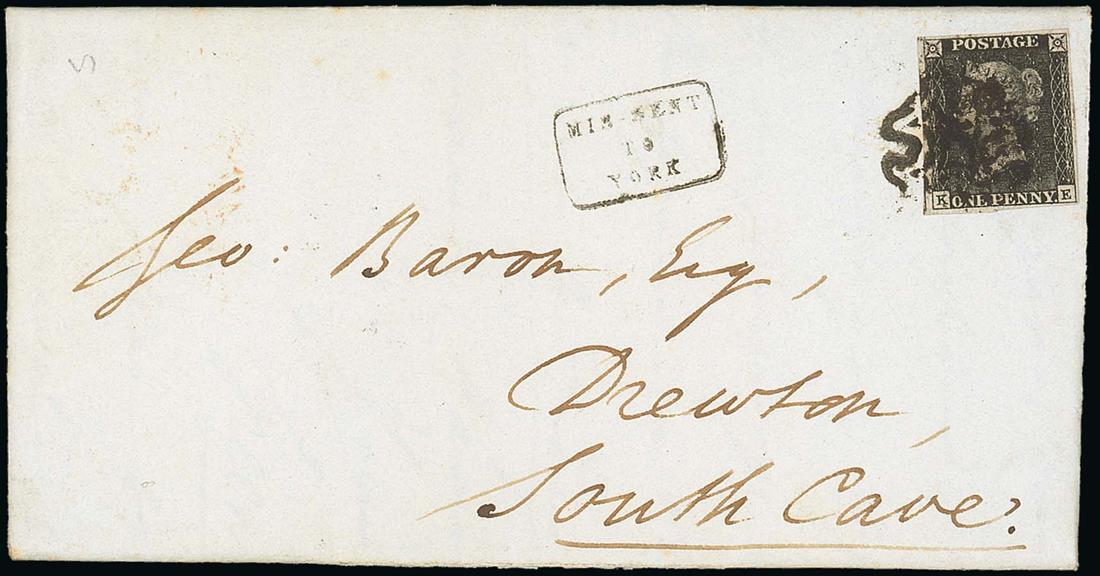 POSTAGE
MIS-SENT
TO
YORK
K ONE PENNY. E
Geo: Baron, Esq,
Drewton,
South Cave.